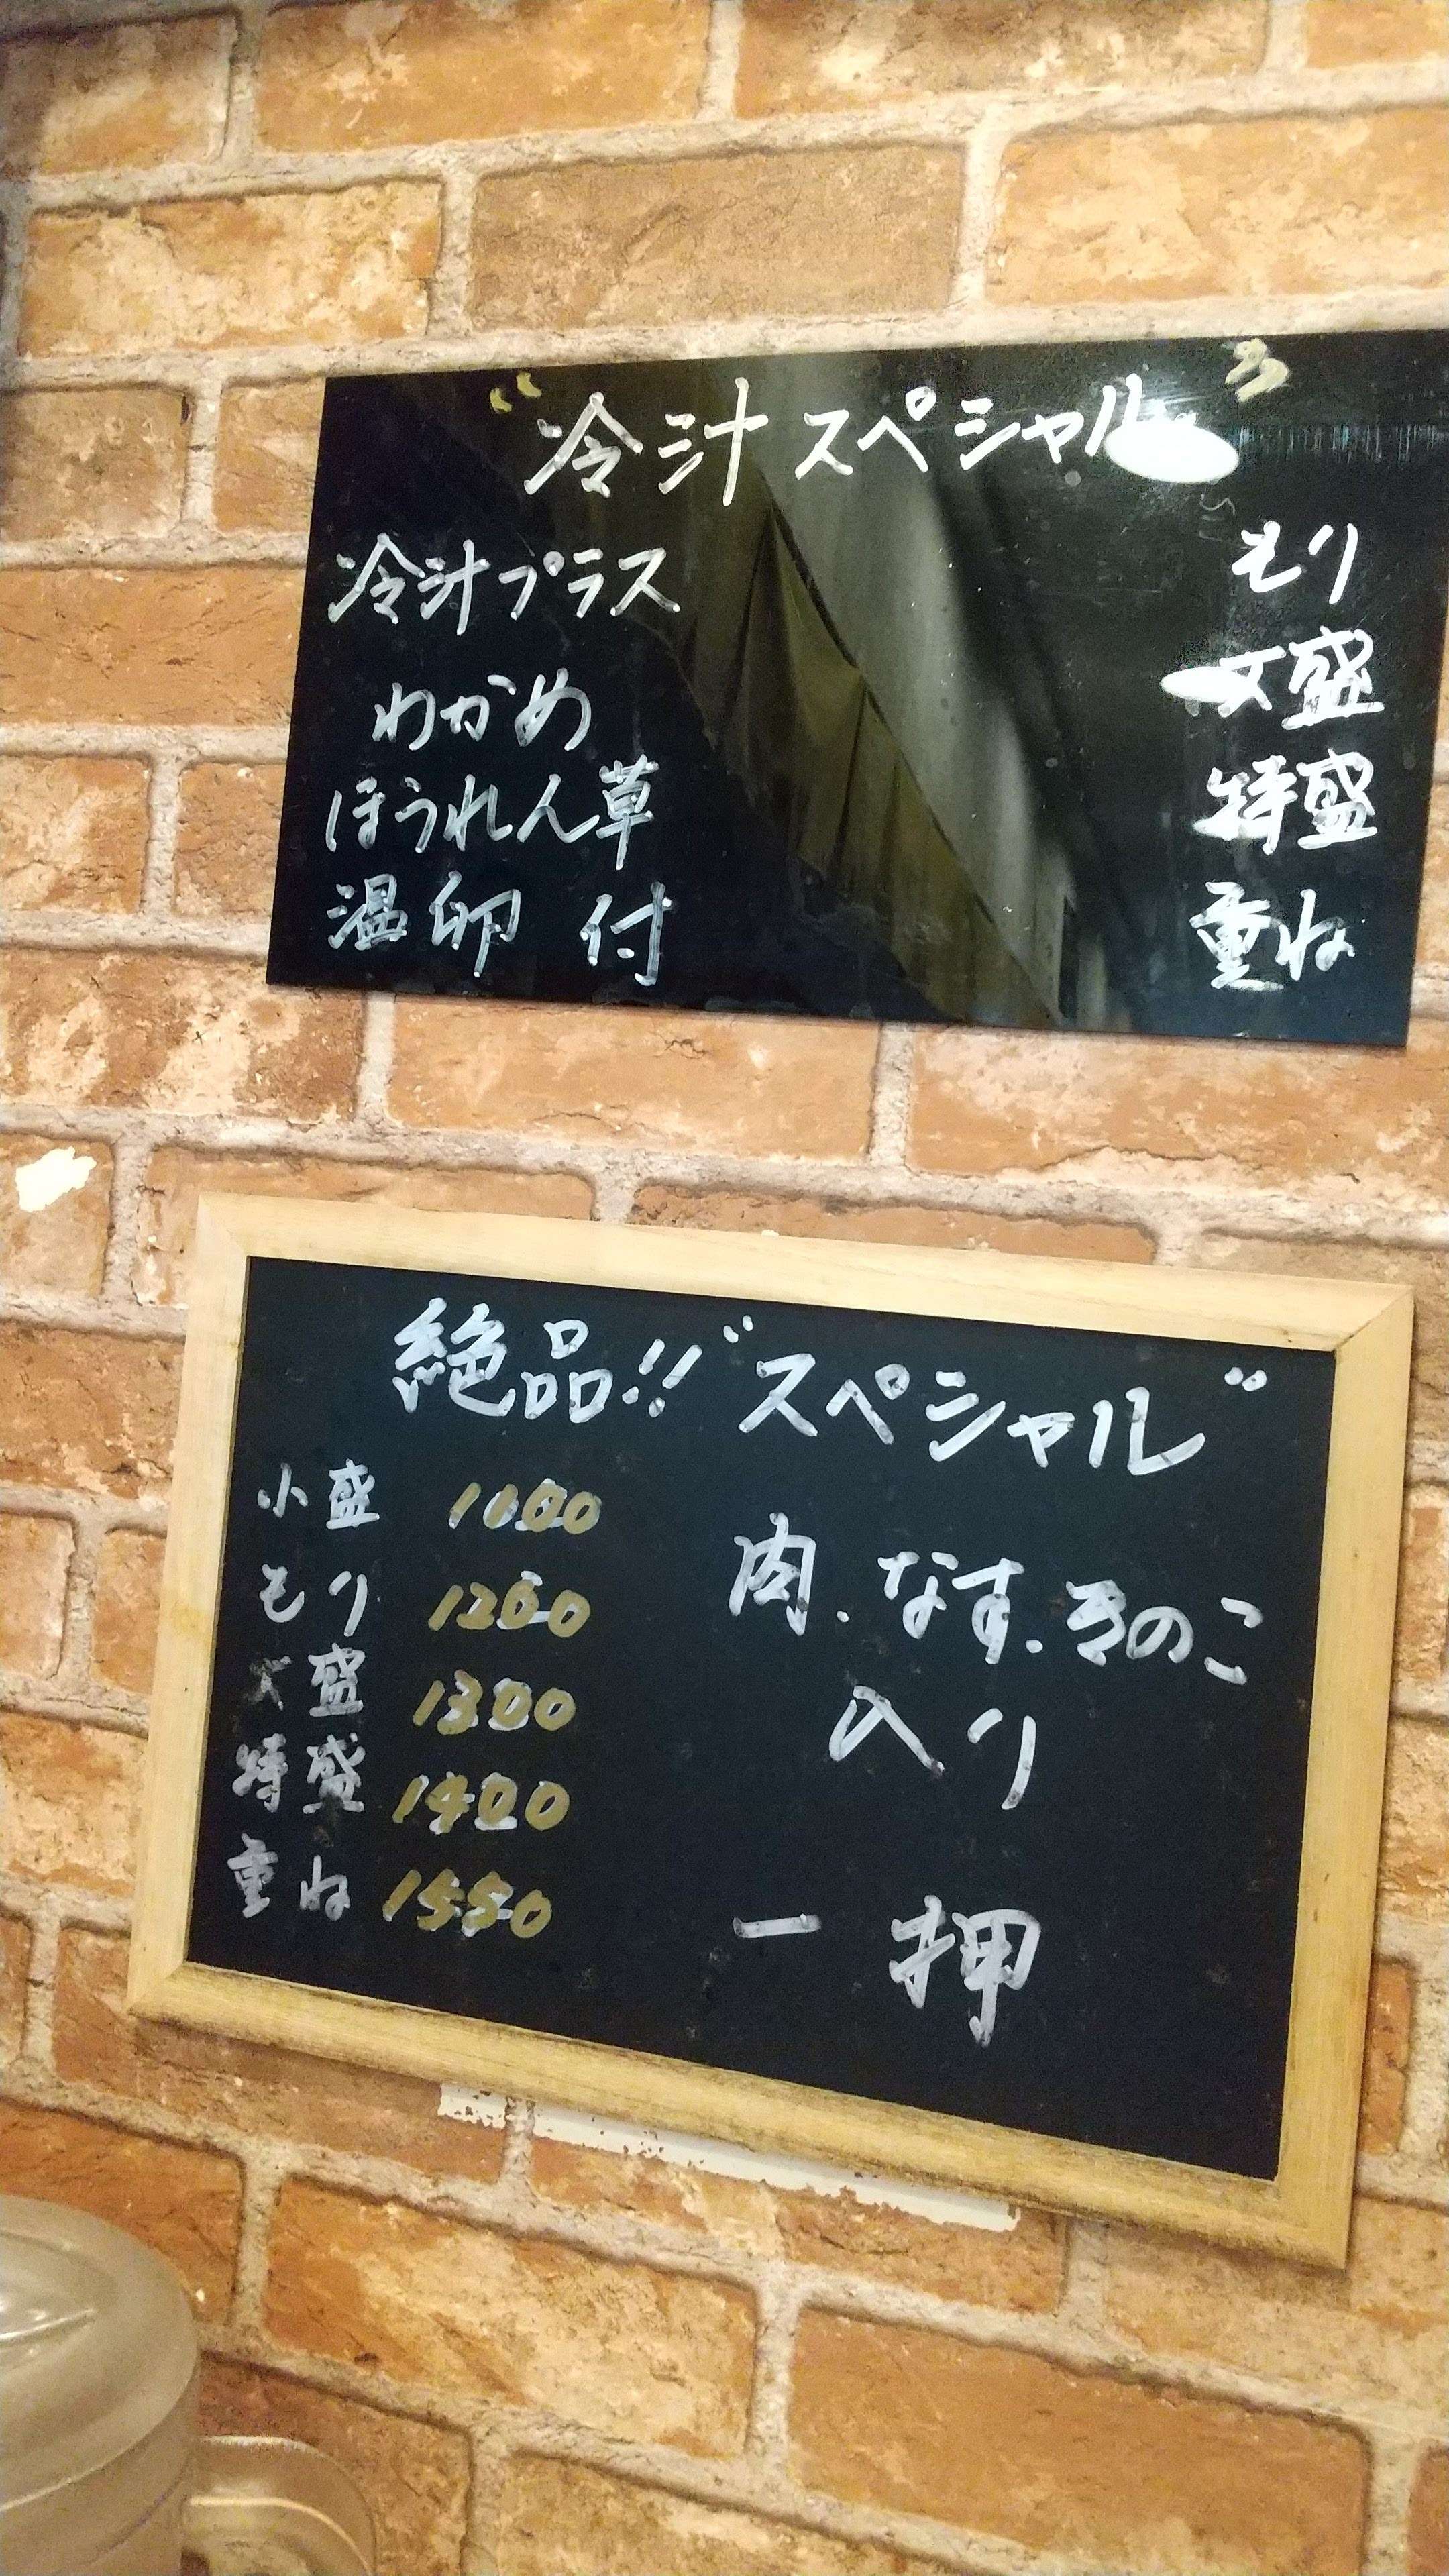 "冷汁スペシャル"
冷汁プラス
わかめ
ほうれん草
温卵 付
もり
大盛
特盛
重ね
絶品!!"スペシャル"
小盛 1100
もり 1200
大盛 1300
特盛 1400
重ね 1550
肉.なす.きのこ
入り
一押